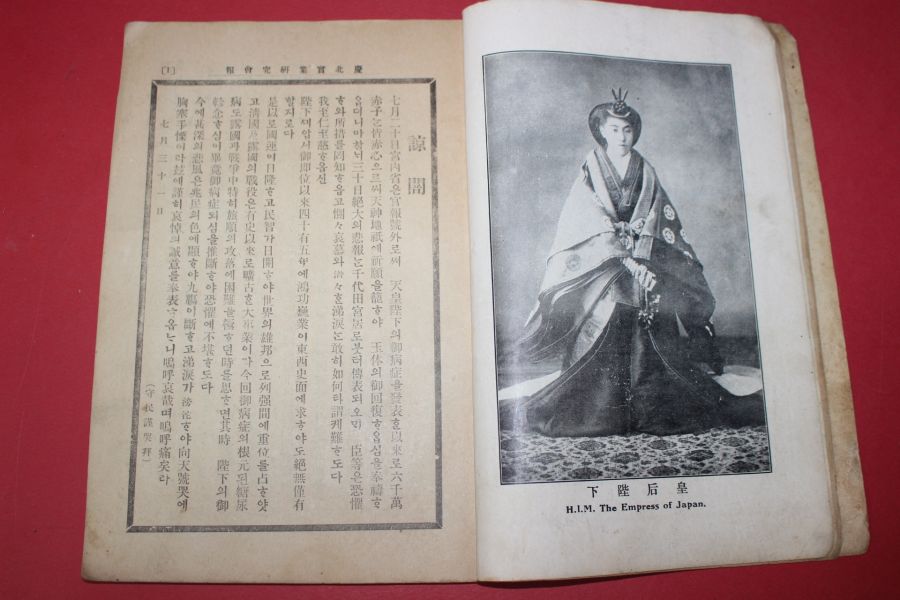 慶北實業硏究會報 〔1〕
諒闇
七月二十日宮內省은官報號外로써 天皇陛下의御病症을發表ᄒᆞ以來로六千萬
赤子는皆赤心으로써天神地祇에祈願을籠ᄒᆞ야 玉体의御回復ᄒᆞ옵심을奉禱ᄒᆞ
옵더니 三十日絕大의悲報는千代田宮居로붓터傳表되오ᄆᆡ 臣等은恐懼
ᄒᆞ와所措를罔知ᄒᆞ옵고惻々哀慕와滂々ᄒᆞᆫ涕淚는敢히如何타謂키難ᄒᆞ도다
我至仁至慈ᄒᆞ옵신
陛下ᄭᅴ압서御卽位以來四十有五年에鴻功巍業이東西史面에求ᄒᆞ야도絕無僅有
ᄒᆞᆯ지로다
是以로國運이日隆ᄒᆞ고民智가日開ᄒᆞ야世界의雄邦으로列强間에重位를占ᄒᆞ얏
고淸國及露國의戰役은有史以來로曠古ᄒᆞᆫ大事業이라今回御病症의根元된糖尿
病도露國과戰爭中特히旅順의攻落에困難을極ᄒᆞ던時를思ᄒᆞ면其時 陛下의御
軫念ᄒᆞ심이畢竟御病症되심을推斷ᄒᆞ야恐懼에不堪ᄒᆞ도다
今에甚深의悲風은兆民의色에顯ᄒᆞ야九膓이斷ᄒᆞ고涕淚가滂沱ᄒᆞ야向天號哭에
胸寒手慄이라玆에謹히哀悼의誠意를奉表ᄒᆞ옵ᄂᆞ니嗚呼哀哉며嗚呼痛矣라
七月三十一日
(守民謹哭拜)
皇后陛下
H.I.M. The Empress of Japan.